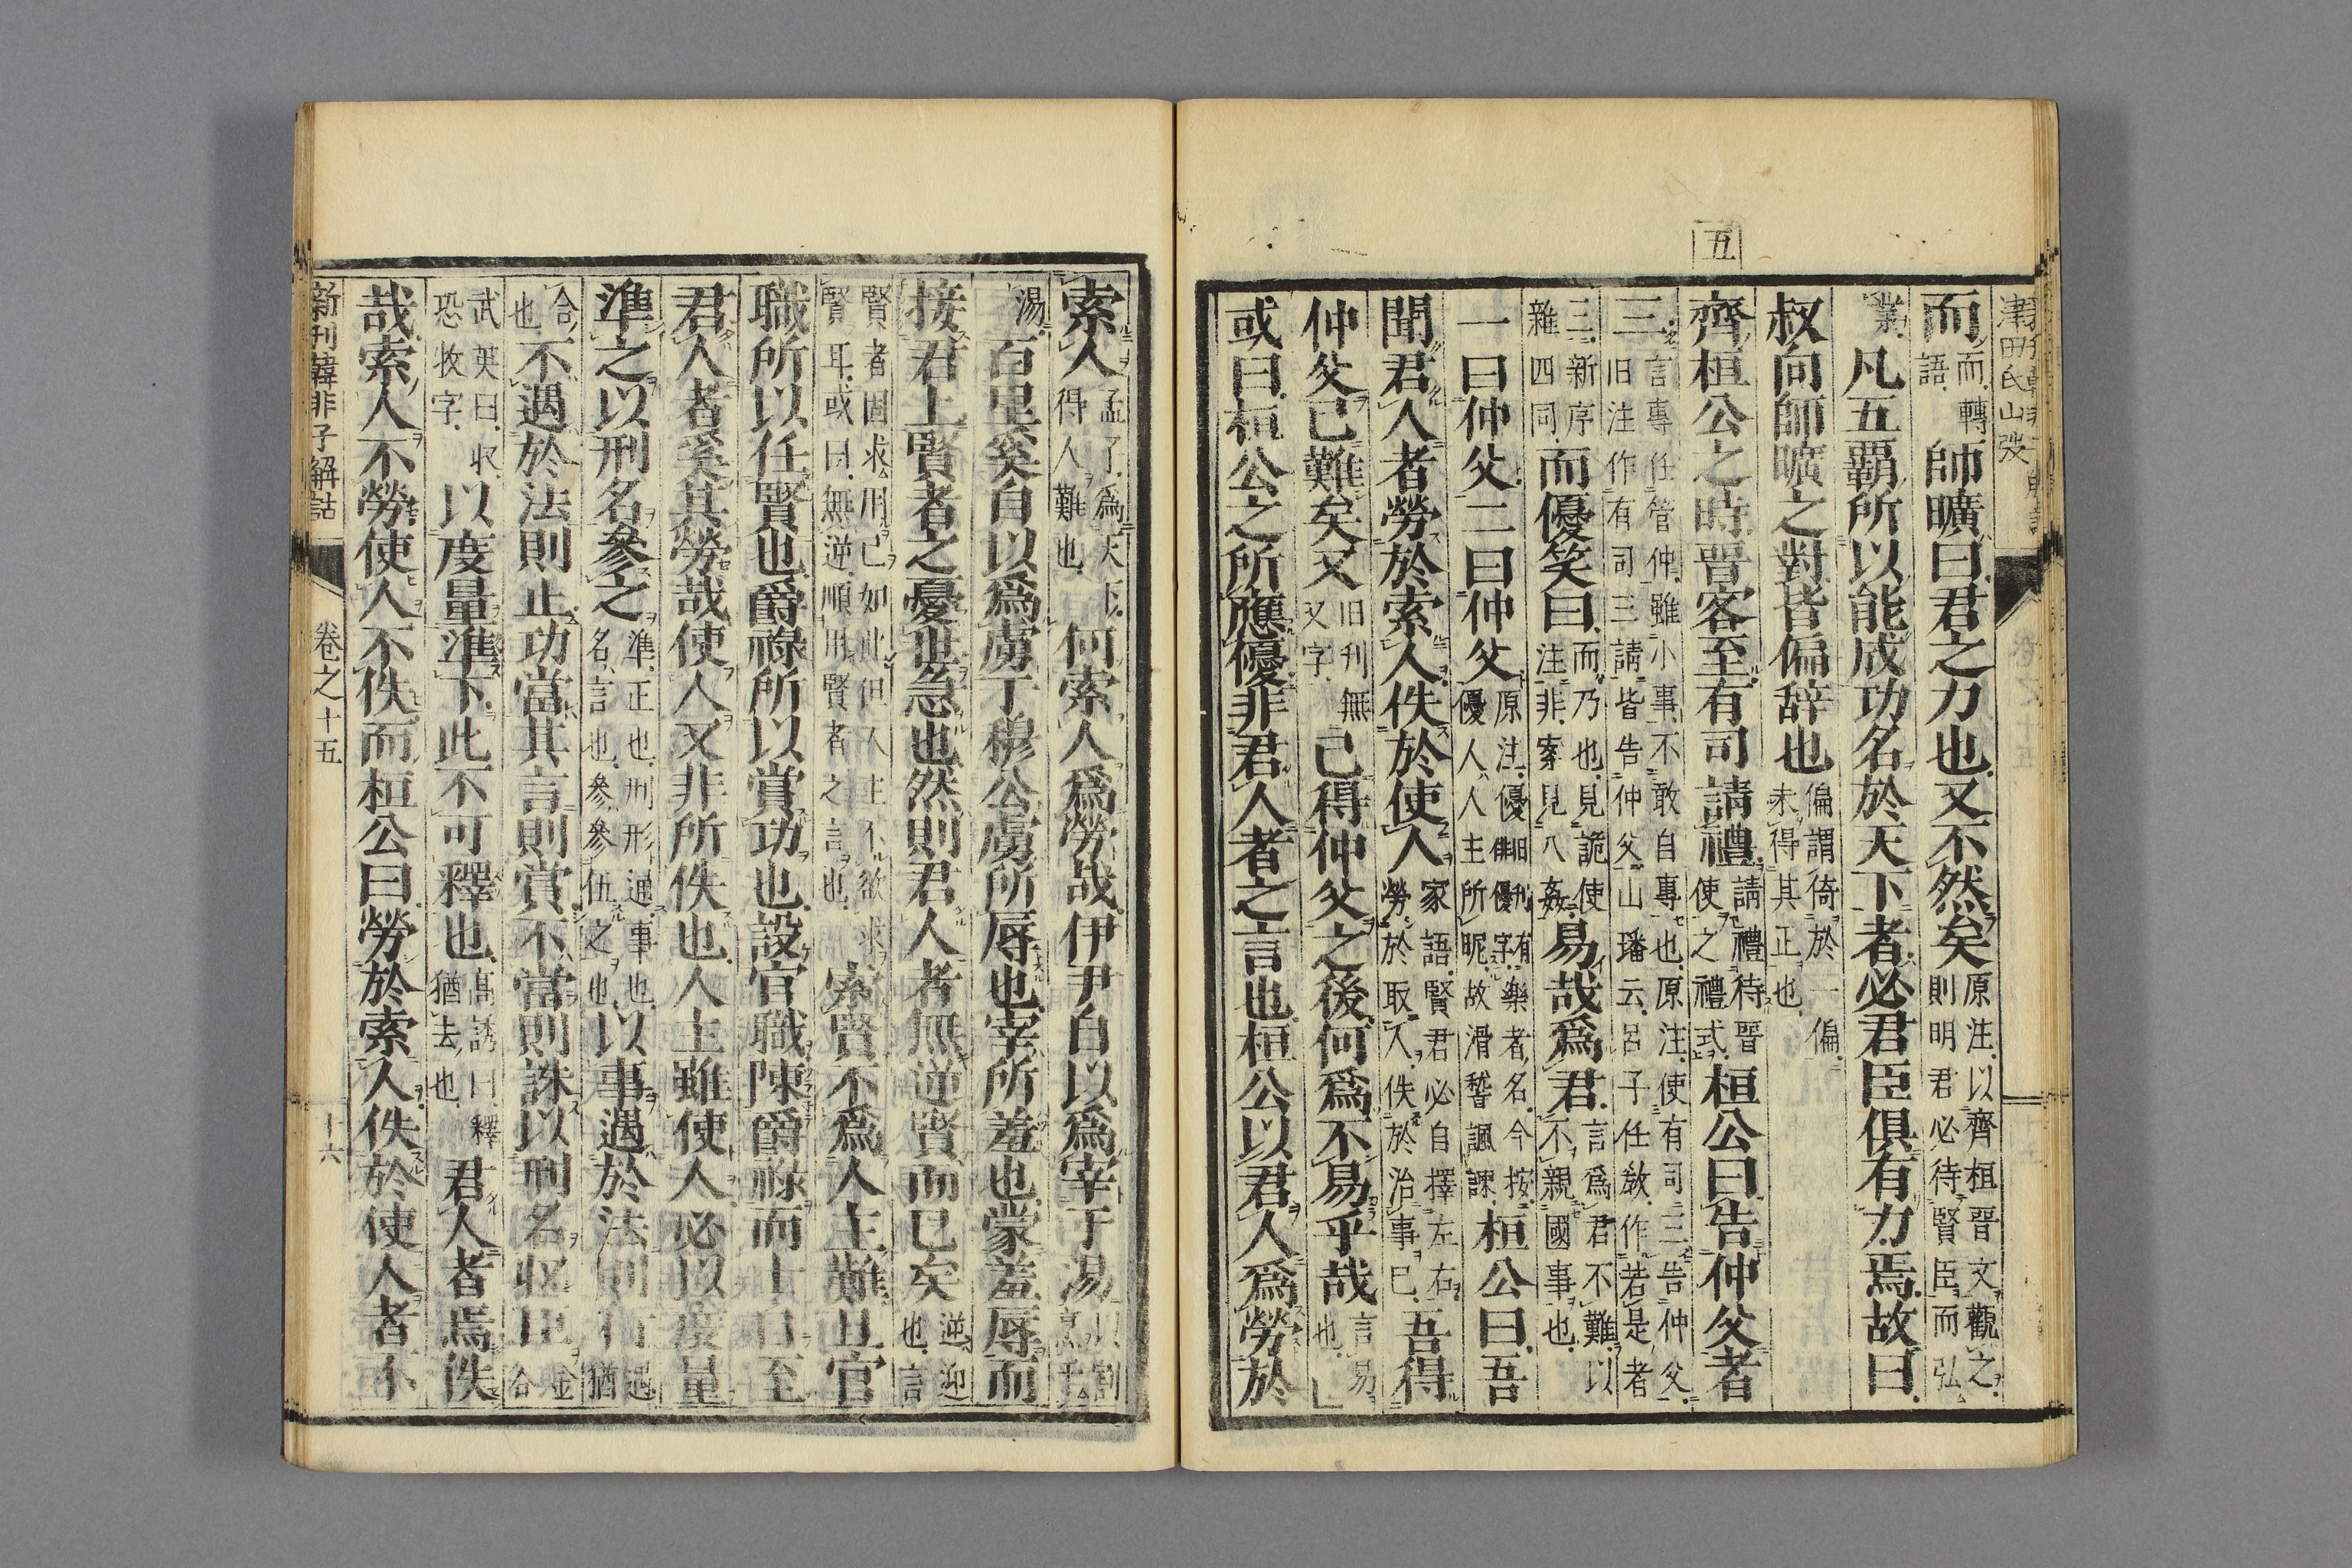 五
而而轉語師曠曰君之力也又不然矣原注以齊桓晋文觀之則明君必待賢臣而弘
業凡五霸所以能成功名於天下者必君臣俱有力焉故曰
叔向師曠之對皆偏辭也偏謂倚於一偏未得其正也
齊桓公之時晋客至有司請禮請禮待晋使之禮式桓公曰告仲父者
三言專任管仲雖小事不敢自專也原注使有司三告仲父旧注作有司三請皆告仲父山璠云呂子任敵作若是者
三新序雜四同而優笑曰而乃也見詭使注非案見八姦易哉爲君言爲君不難以不親國事也
一曰仲父二曰仲父原注優旧刊有俳優字樂者名今按優人人主所昵故滑稽諷諌桓公曰吾
聞君人者勞於索人佚於使人家語賢君必自擇左右勞於取人佚於治事已吾得
仲父已難矣又旧刊無又字已得仲父之後何爲不易乎哉言易也
或曰桓公之所應優非君人者之言也桓公以君人爲勞於
索人孟子爲天下得人難也何索人爲勞哉伊尹自以爲宰于湯以割烹干
湯百里奚自以爲虜于穆公虜所辱也宰所羞也蒙羞辱而
接君上賢者之憂世急也然則君人者無逆賢而已矣逆迎也言
賢者固求用己如此但人主不欲求賢耳或曰無逆順用賢者之言也索賢不爲人主難且官
職所以任賢也爵祿所以賞功也設官職陳爵祿而士自至
君人者奚其勞哉使人又非所佚也人主雖使人必以度量
準之以刑名參之準正也刑形通事也名言也參參伍之也以事遇於法則行遇猶
合也不遇於法則止功當其言則賞不當則誅以刑名收臣金谷
武英曰収恐牧字以度量準下此不可釋也髙誘曰釋猶去也君人者焉佚
哉索人不勞使人不佚而桓公曰勞於索人佚於使人者不
新刊韓非子解詁　卷之十五　十六